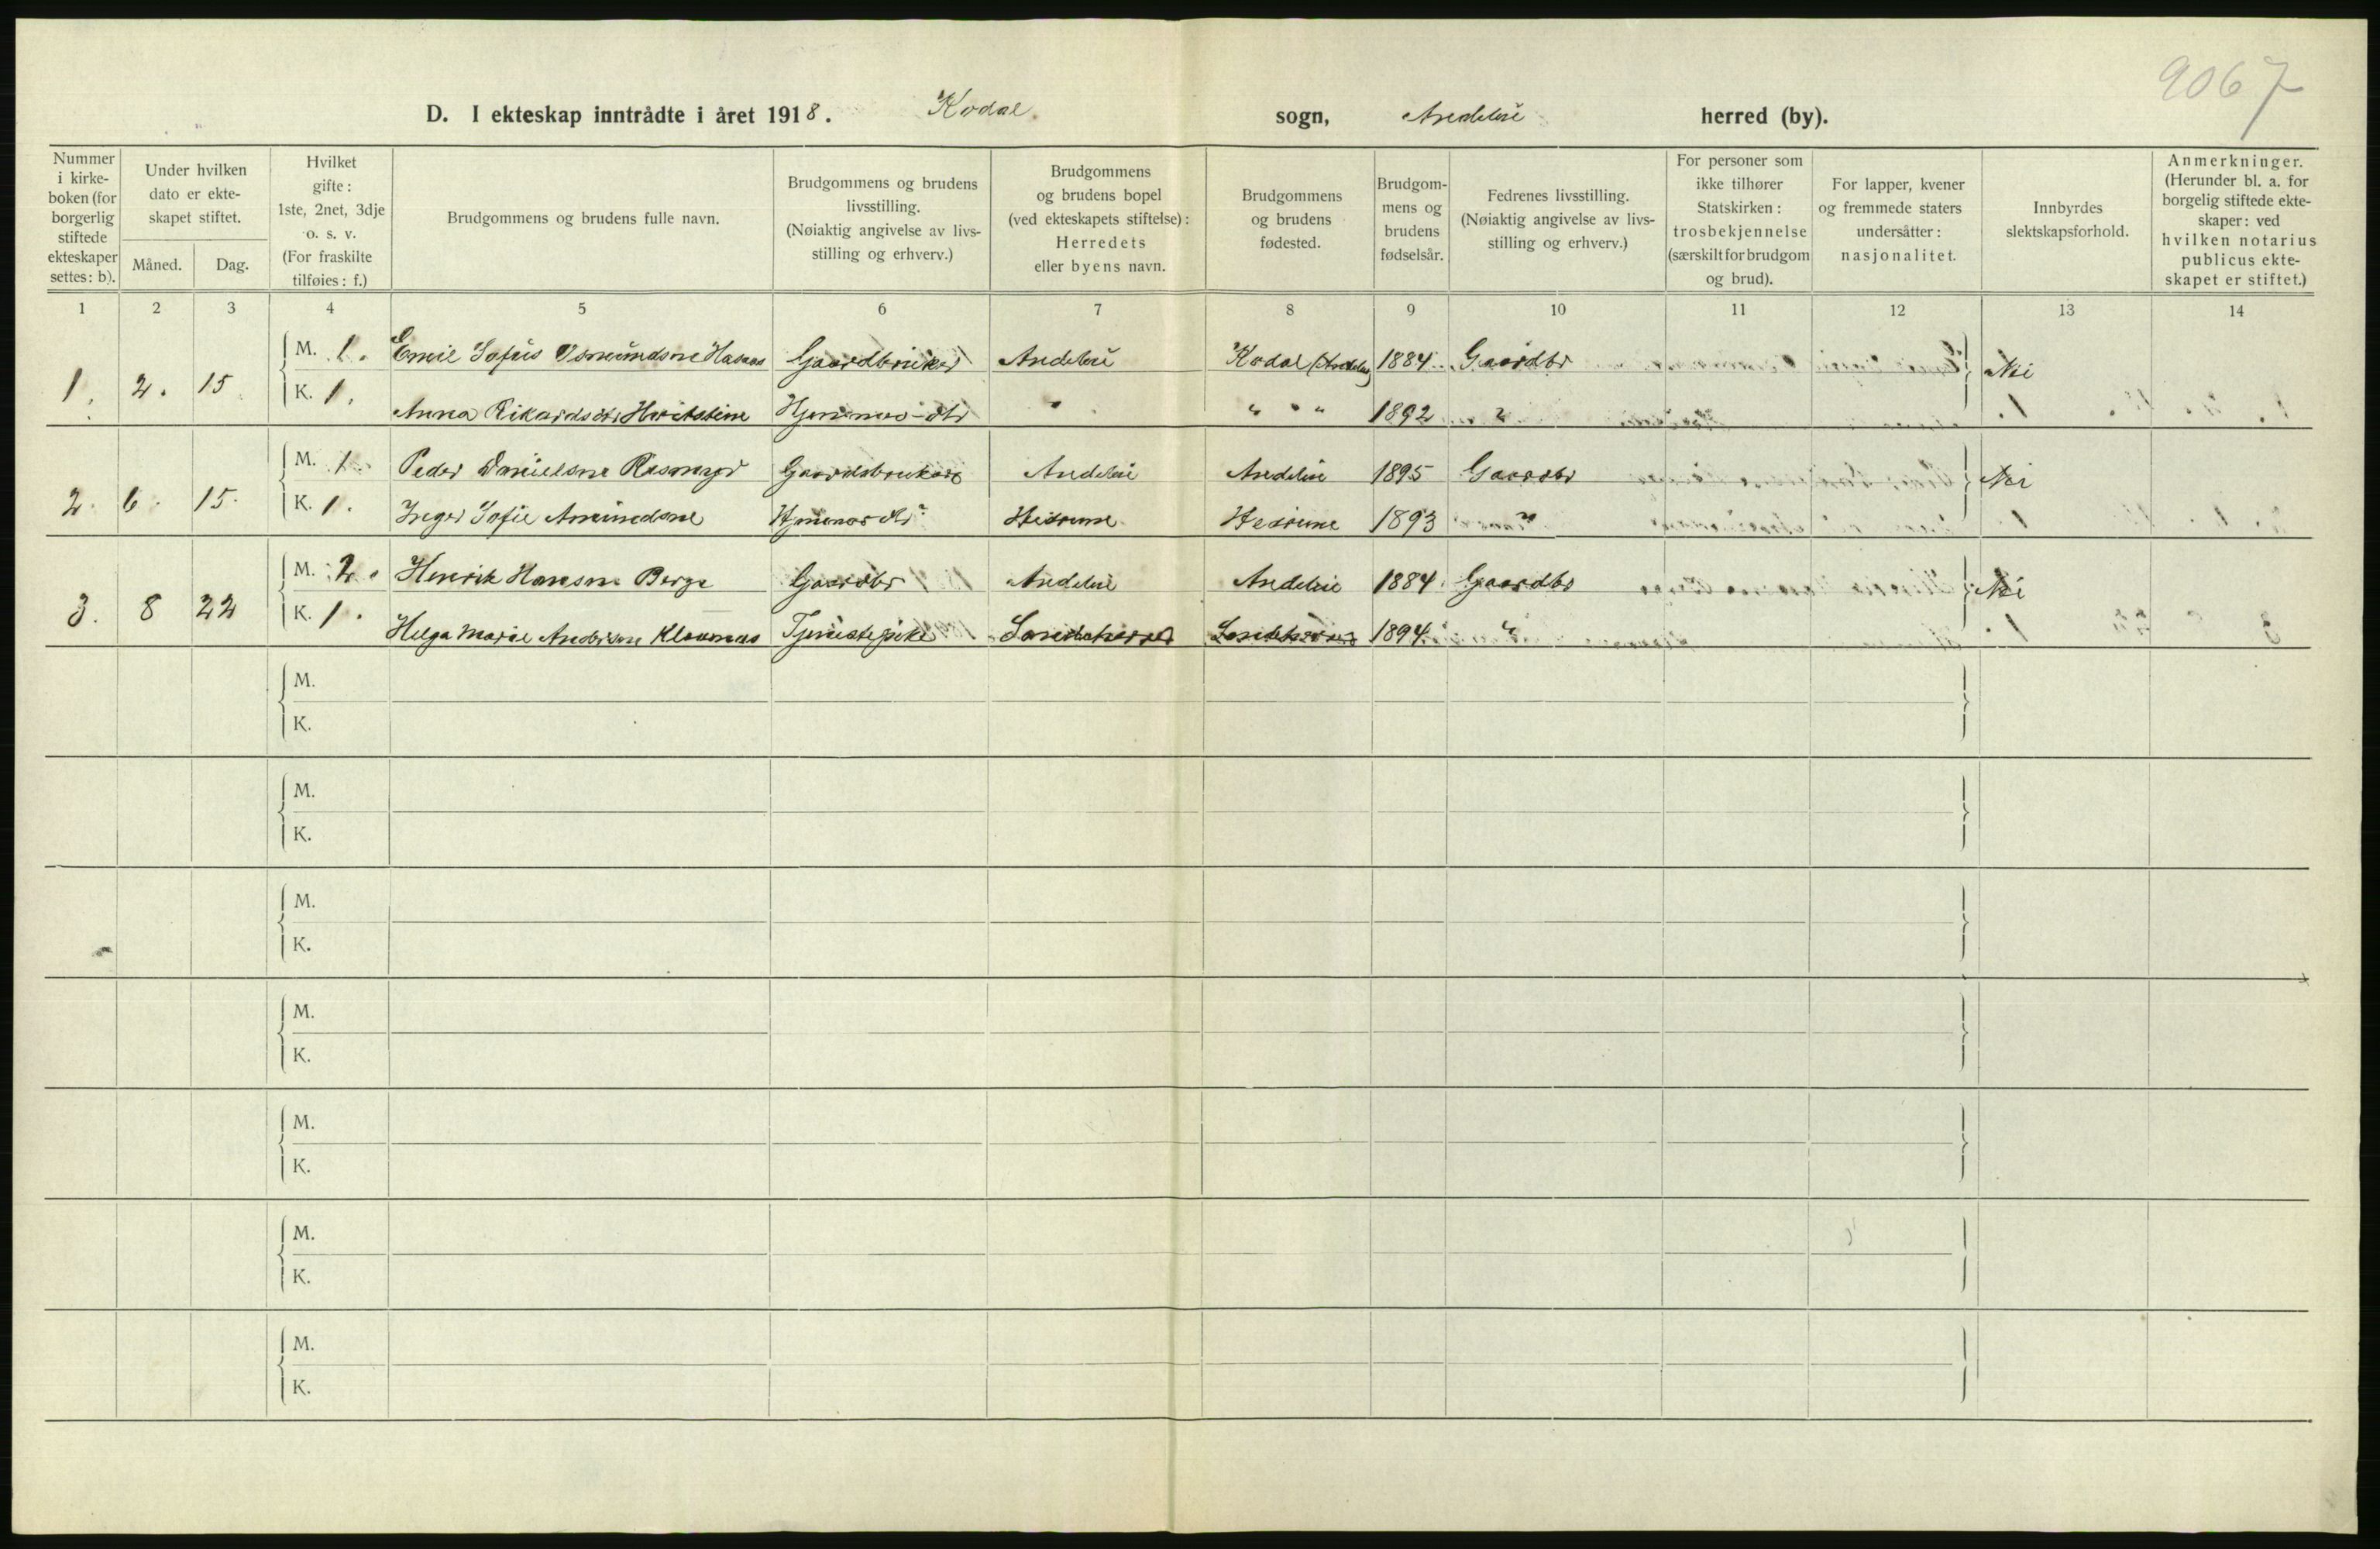 9067
D. I ekteskap inntrådte i året 1918. Kodal sogn, Andebu herred (by).
Nummer i kirke- boken (for borgerlig stiftede ekteskaper settes: b).
Under hvilken dato er ekte- skapet stiftet.
Måned. Dag.
Hvilket gifte: 1ste, 2net, 3dje o. s. v. (For fraskilte tilføies: f.)
Brudgommens og brudens fulle navn.
Brudgommens og brudens livsstilling. (Nøiaktig angivelse av livs- stilling og erhverv.)
Brudgommens og brudens bopel (ved ekteskapets stiftelse): Herredets eller byens navn.
Brudgommens og brudens fødested.
Brudgom- mens og brudens fødselsår.
Fedrenes livsstilling. (Nøiaktig angivelse av livs- stilling og erhverv.)
For personer som ikke tilhører Statskirken: trosbekjennelse (særskilt for brudgom og brud).
For lapper, kvener og fremmede staters undersåtter: nasjonalitet.
Innbyrdes slektskapsforhold.
Anmerkninger. (Herunder bl. a. for borgelig stiftede ekte- skaper: ved hvilken notarius publicus ekte- skapet er stiftet.)
1 2 3 4 5 6 7 8 9 10 11 12 13 14
1. 2. 15 M. 1. Emil Sofus Gaardbruker Andebu Kodal (Andebu) 1884 Gaardbr Nei
K. 1. Anna Rikardsdtr " " " " 1892 "
2. 6. 15. M. 1. Peder Danielsne Gaardsbruker Andebu Andebu 1895 Gaardbr Nei
K. 1. Inger Sofie Amundsne Hedrum Hedrum 1893 "
3. 8 22 M. 2. Henrik Hansne Berge Gaardbr Andebu Andebu 1884 Gaardbr Nei
K. 1. Helga Marie Andersne Klavenes Tjenestepike Sandeherred Sandeherred 1894 "
M.
K.
M.
K.
M.
K.
M.
K.
M.
K.
M.
K.
M.
K.